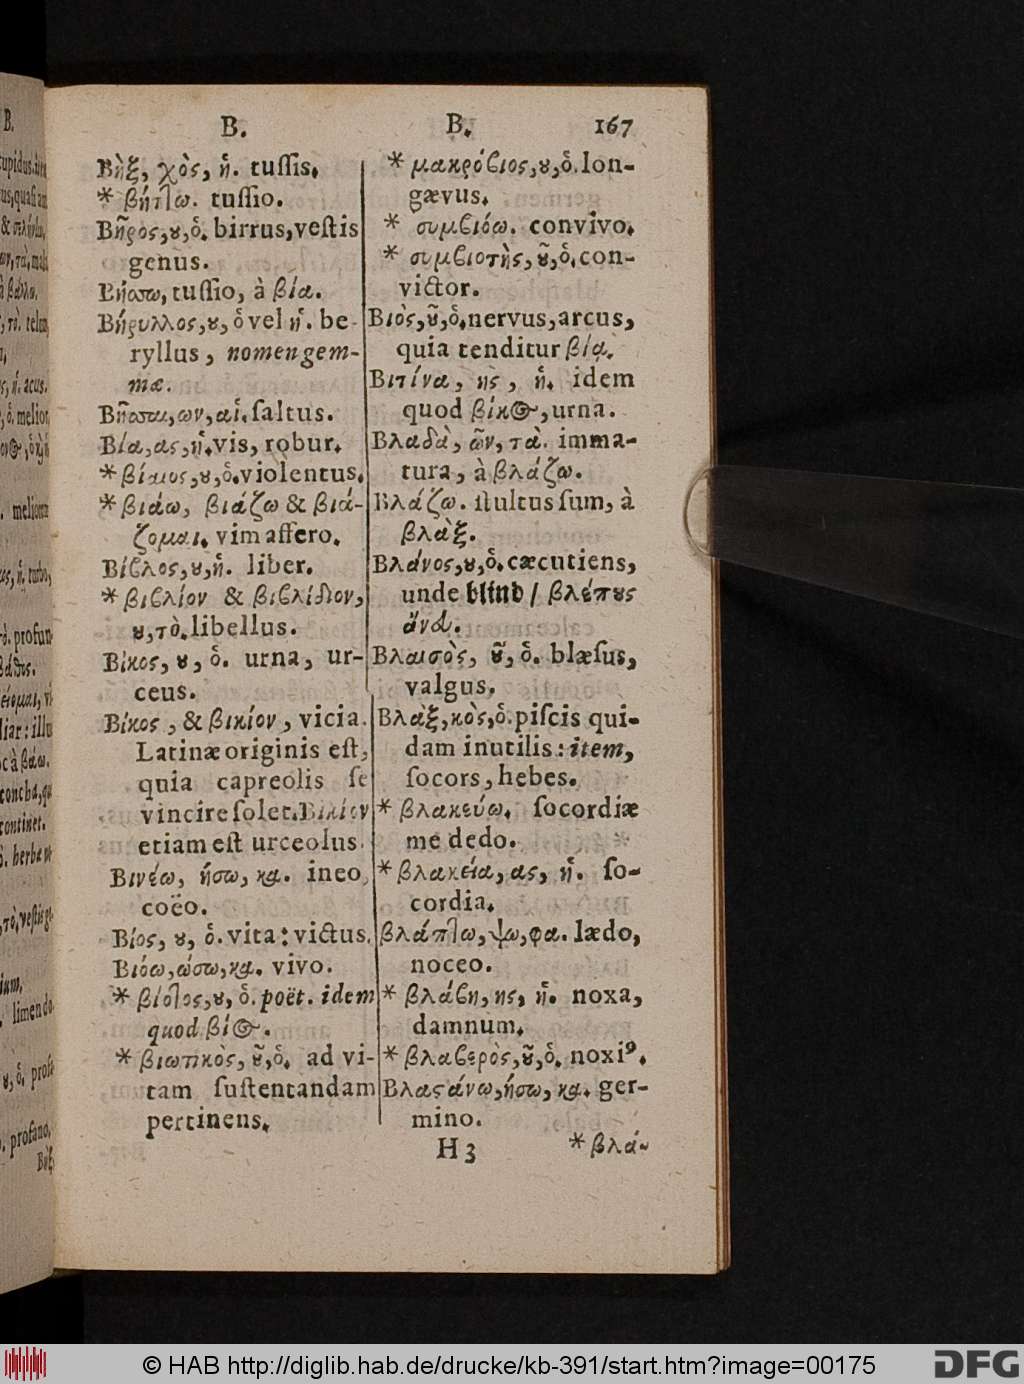 B.
Βὴξ, χὸς, ἡ. tuſſis.
* βήτlω. tuſſio.
Βῆρος, ȣ, ὁ. birrus, veſtis
genus.
Βήσσω, tuſſio, à βία.
Βήρυλλος, ȣ, ὁ vel ἡ. be-
ryllus, nomen gem-
mæ.
Βῆσσαι, ων, αἱ. ſaltus.
Βία, ας, ἡ. vis, robur.
* βίαιος, ȣ, ὁ. violentus.
* βιάω, βιάζω & βιά-
ζομαι. vim affero.
Βίϐλος, ȣ, ἡ. liber.
* βιϐλίον & βιϐλίδιον,
ȣ, τὸ. libellus.
Βίκος, ȣ, ὁ. urna, ur-
ceus.
Βίκος, & βικίον, vicia.
Latinæ originis eſt,
quia capreolis ſe
vincire ſolet. Βικίον
etiam eſt urceolus.
Βινέω, ήσω, κα. ineo
coëo.
Βίος, ȣ, ὁ. vita: victus.
Βιόω, ώσω, κα. vivo.
* βίοlος, ȣ, ὁ. poët. idem
quod βίος.
* βιωτικὸς, ȣ͂, ὁ. ad vi-
tam ſuſtentandam
pertinens.
B. 167
* μακρόϐιος, ȣ, ὁ. lon-
gævus.
* συμϐιόω. convivo.
* συμϐιοτὴς, ȣ͂, ὁ. con-
victor.
Βιὸς, ȣ͂, ὁ. nervus, arcus,
quia tenditur βίᾳ.
Βιτίνα, ης, ἡ. idem
quod βίκος, urna.
Βλαδὰ, ῶν, τὰ. imma-
tura, à βλάζω.
Βλάζω. ſtultus ſum, à
βλὰξ.
Βλάνος, ȣ, ὁ. cæcutiens,
unde blind / βλέπȣς
ἄνϐ.
Βλαισὸς, ȣ͂, ὁ. blæſus,
valgus.
Βλὰξ, κὸς, ὁ. piſcis qui-
dam inutilis: item,
ſocors, hebes.
* βλακεύω. ſocordiæ
me dedo.
* βλακεία, ας, ἡ. ſo-
cordia.
βλάπτlω, ψω, φα. lædo,
noceo.
* βλάϐη, ης, ἡ. noxa,
damnum.
* βλαϐερὸς, ȣ͂, ὁ. noxiꝰ.
Βλαϛάνω, ήσω, κα. ger-
mino.
H 3 * βλά-
© HAB http://diglib.hab.de/drucke/kb-391/start.htm?image=00175
DFG